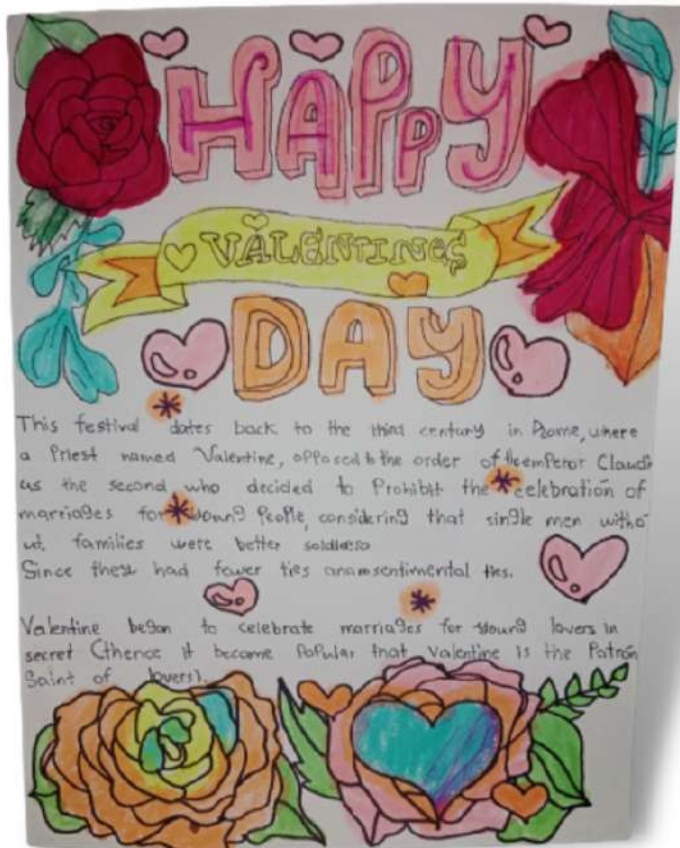 HAPPY
VALENTINES
DAY
This festival dates back to the third century in Rome, where
a Priest named Valentine, opposed to the order of the emperor Claudi
us the second who decided to Prohibit the celebration of
marriages for young People, considering that single men witho
ut families were better
Since they had fewer ties sentimental ties.
Valentine began to celebrate marriages for young lovers in
secret (thence it become Popular that Valentine is the Patron
Saint of lovers).